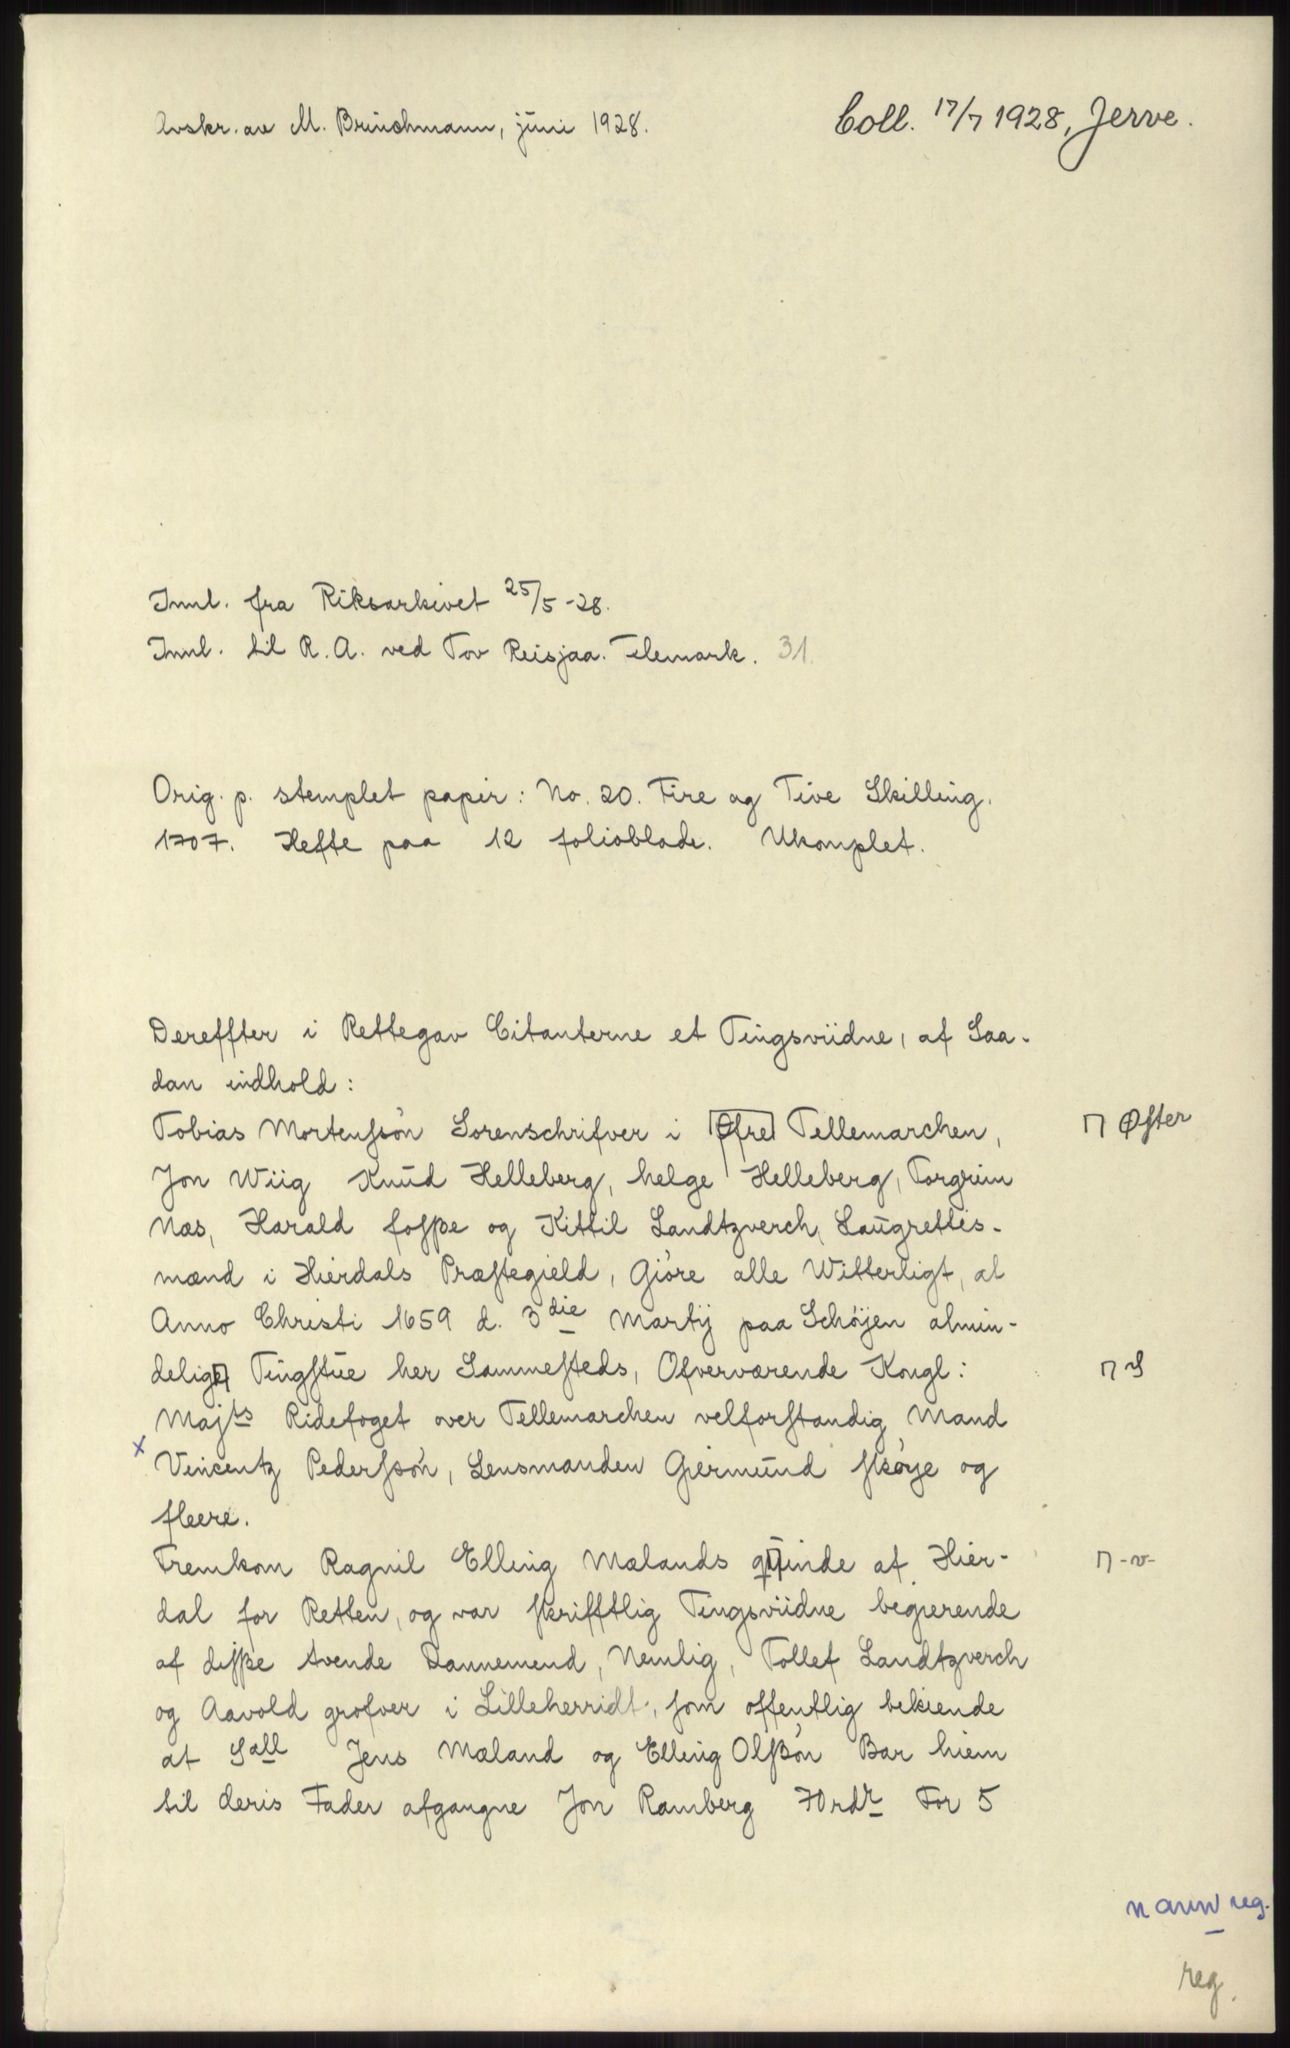 Avskr. av M. Brinchmann, juni 1928.
Coll. 17/7 1928, Jerve.
Innl. fra Riksarkivet 25/5-28.
Innl. til R. A. ved Tov Reisjaa. Telemark. 31.
Orig. p. stemplet papir: No. 20. Fire og Tive Skilling.
1707. Hefte paa 12 folioblade. Ukomplet.
Dereffter i Rettegav Citanterne et Tingsviidne, af Saa-
dan indhold:
Tobias Mortenssøn Sorenschrifver i Øfre Tellemarchen,
⊓ Øfter
Jon Wiig Knud Helleberg, helge Helleberg, Torgrim
Næs, Harald fosse og Kittil Landtzverch, Laugrettis-
mænd i Hierdals Præstegield, Giøre alle Witterligt, at
Anno Christi 1659 d. 3die Martij paa Schøjen almin-
delige Tingstue her Sammesteds, Ofverværende Kongl:
⊓ s
Majts Ridefoget over Tellemarchen velforstandig Mand
x Vincentz Pederssøn, Lensmanden Giermund skøye og
fleere.
Fremkom Ragnil Elling Mælands quinde af Hier-
⊓ -v-
dal for Retten, og var skrifftlig Tingsviidne begierende
af disse tvende Dannemend, Nemlig, Tollef Landtzverch
og Aavold grofver i Lilleherridt, som offentlig bekiende
at Sall Jens Mæland og Elling Olssøn Bar hiem
til deris Fader afgangne Jon Ramberg 70 rdr For 5
navnreg.
reg.